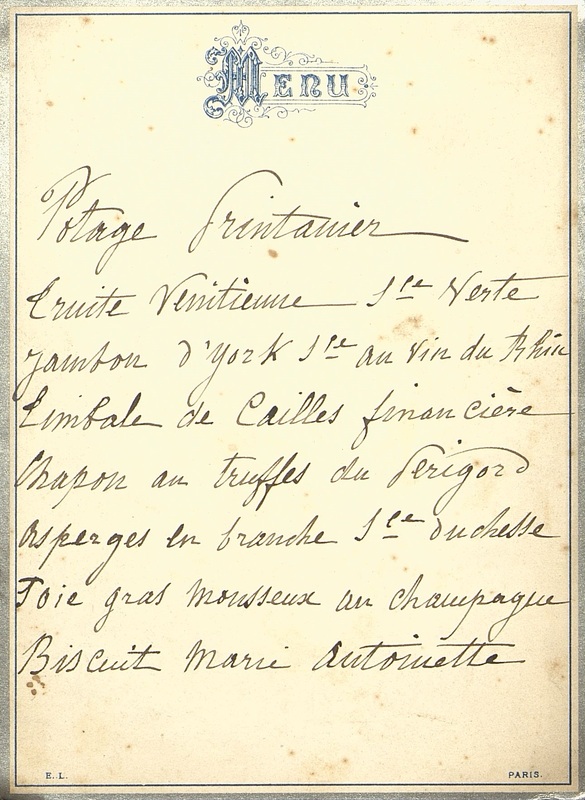 MENU
Potage Printanier
Truite Venitienne Sce Verte
Jambon d'York Sce au Vin du Rhin
Timbale de Cailles financière
Chapon au truffes du Perigord
Asperges en branche Sce duchesse
Foie gras Mousseux au Champagne
Biscuit Marie Antoinette
E. L. PARIS.